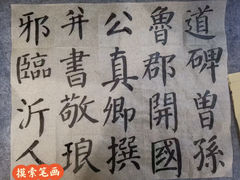 道碑曾孫
魯郡開國
公真卿撰
并書敬琅
邪臨沂人
摸索笔画